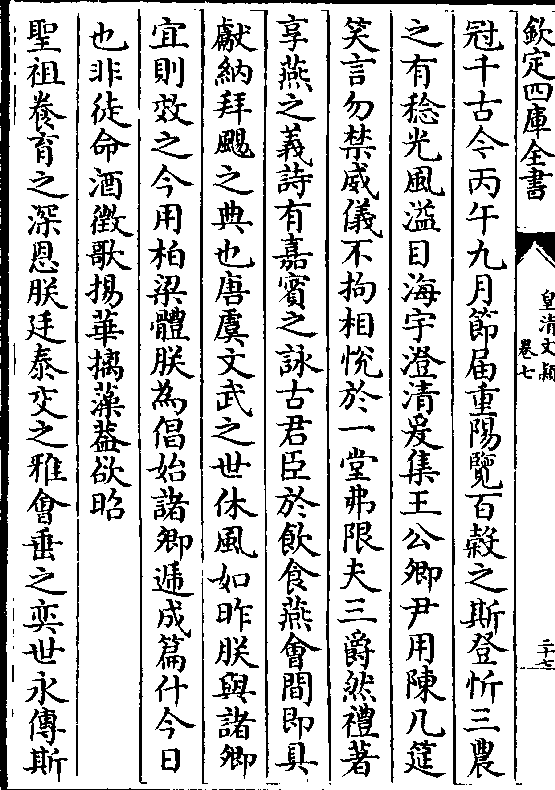 欽定四庫全書
皇清文穎
卷七
二十七
冠千古今丙午九月節届重陽覽百糓之斯登忻三農
之有稔光風溢目海宇澄清爰集王公卿尹用陳几筵
笑言勿禁威儀不拘相悅於一堂弗限夫三爵然禮著
享燕之義詩有嘉賔之詠古君臣於飲食燕會間即具
獻納拜颺之典也唐虞文武之世休風如昨朕與諸卿
宜則效之今用柏梁體朕為倡始諸卿遞成篇什今日
也非徒命酒徵歌揚華摛藻葢欲昭
聖祖養育之深恩朕廷泰交之雅會垂之奕世永傳斯